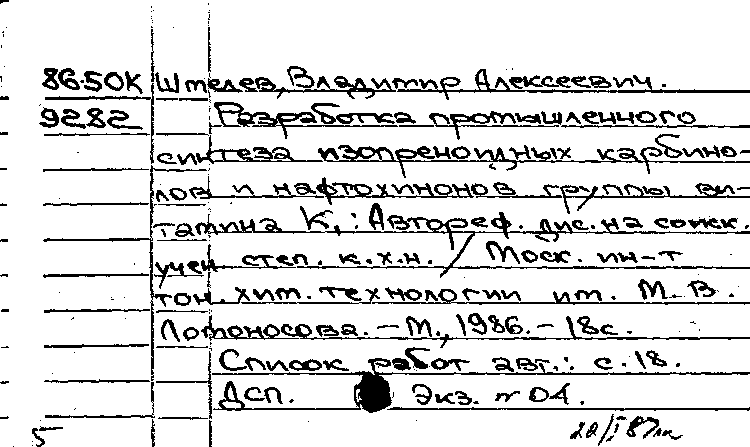 86-50К Штелев, Владимир Алексеевич.
9282 Разработка промышленного
синтеза изопреноидных карбино-
лов и нафтохинонов группы ви-
тамина К,: Автореф. дис. на соиск.
учен. степ. к.х.н. / Моск. ин-т
тон. хим. технологии им. М. В.
Ломоносова. – М., 1986. – 18с.
Список работ авт.: с. 18.
ДСП. Экз. № 04.
5